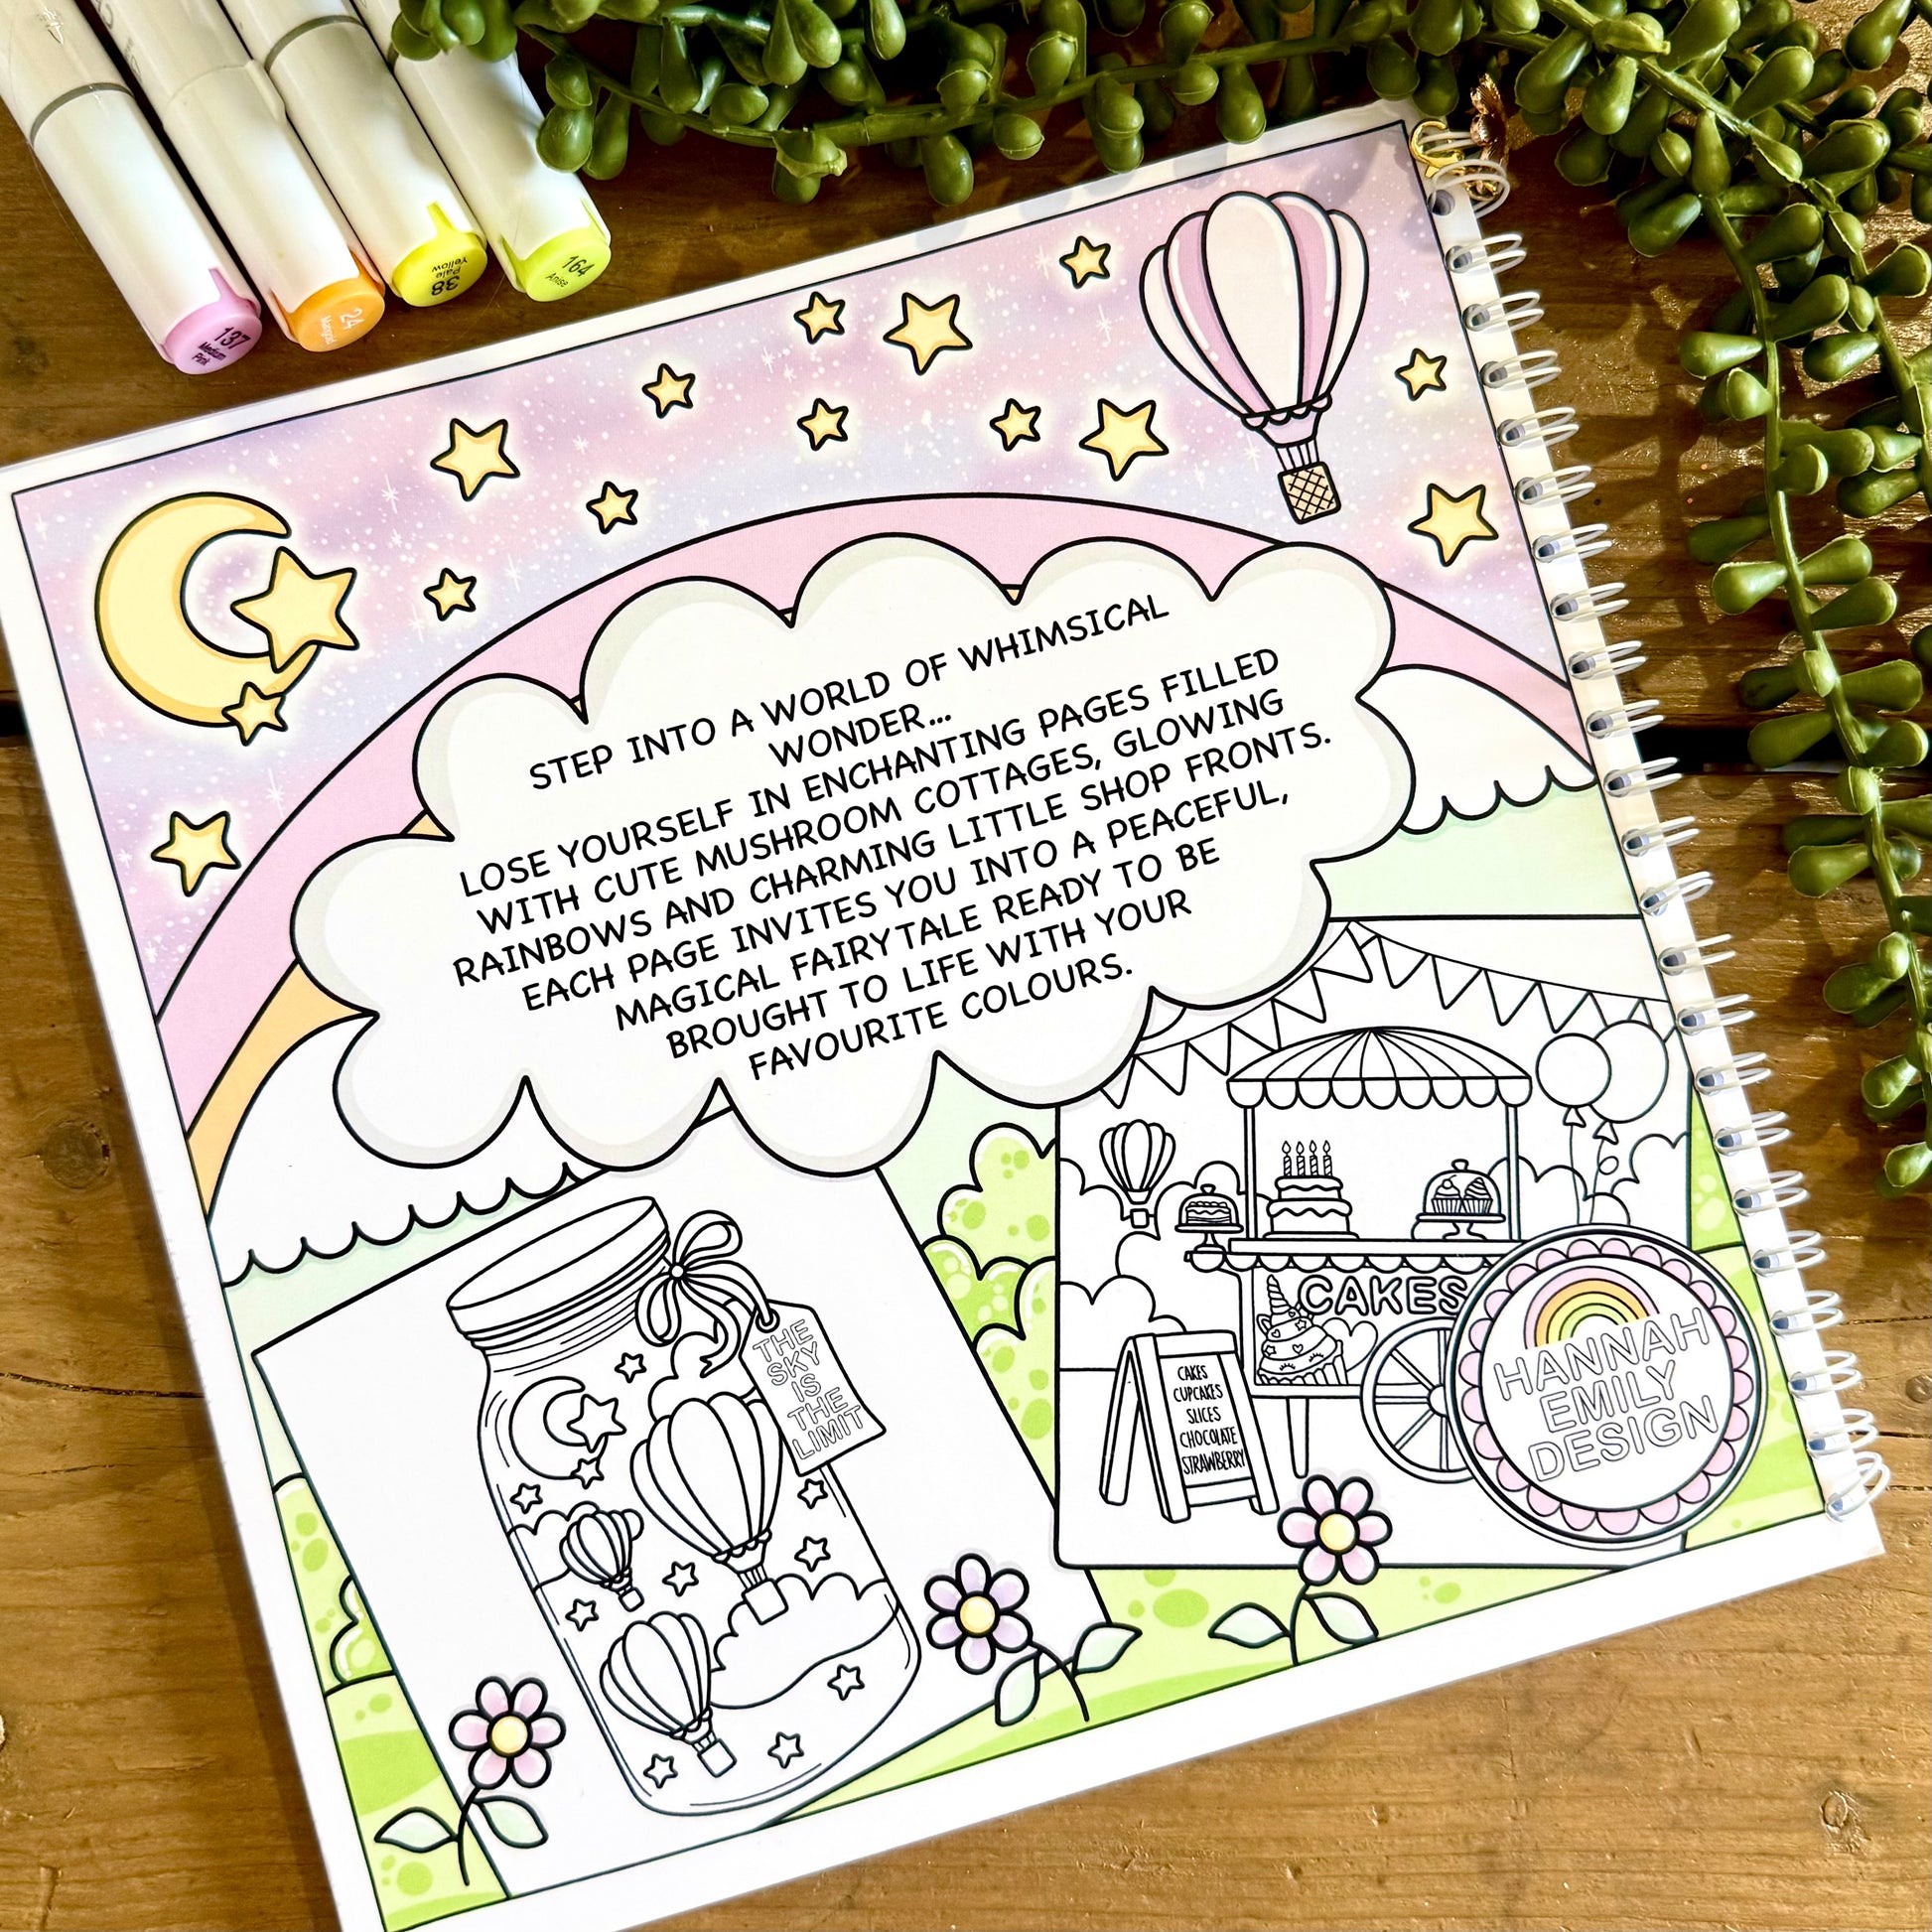 137
Medium
Pink
24
Marigold
38
Pale
Yellow
164
Anise
STEP INTO A WORLD OF WHIMSICAL
WONDER...
LOSE YOURSELF IN ENCHANTING PAGES FILLED
WITH CUTE MUSHROOM COTTAGES, GLOWING
RAINBOWS AND CHARMING LITTLE SHOP FRONTS.
EACH PAGE INVITES YOU INTO A PEACEFUL,
MAGICAL FAIRYTALE READY TO BE
BROUGHT TO LIFE WITH YOUR
FAVOURITE COLOURS.
THE
SKY
IS
THE
LIMIT
CAKES
CAKES
CUPCAKES
SLICES
CHOCOLATE
STRAWBERRY
HANNAH
EMILY
DESIGN